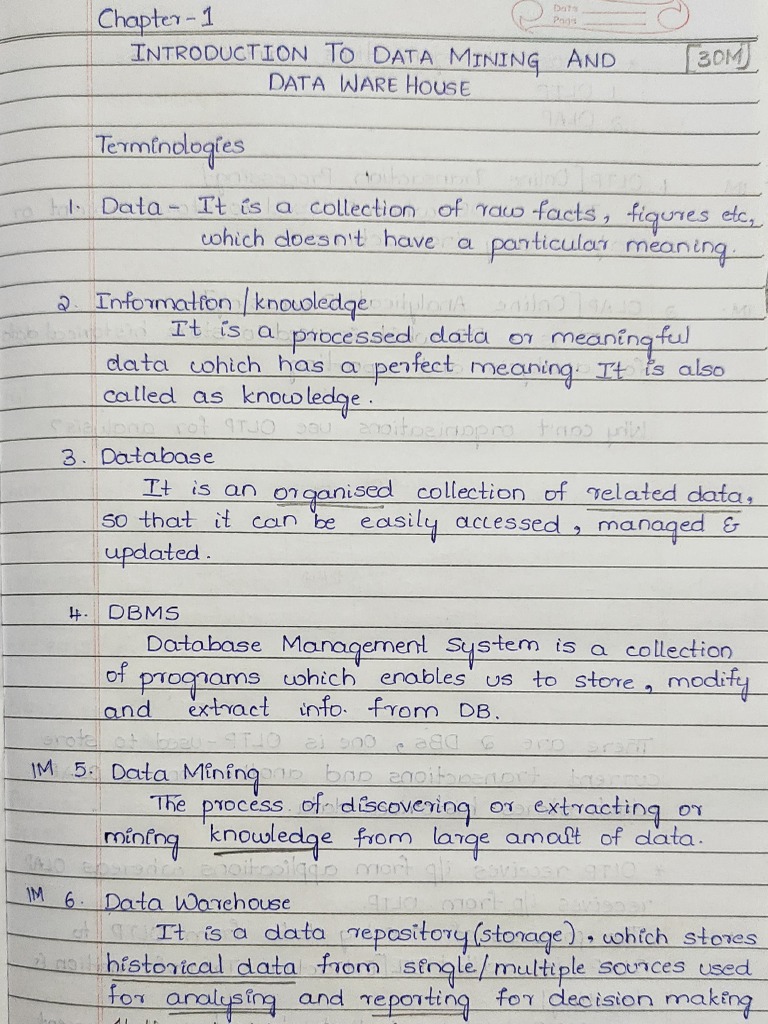 Date
Page
Chapter-1
INTRODUCTION TO DATA MINING AND [30M]
DATA WARE HOUSE
Terminologies
1. Data - It is a collection of raw facts, figures etc,
which doesn't have a particular meaning.
2. Information/knowledge
It is a processed data or meaningful
data which has a perfect meaning. It is also
called as knowledge.
3. Database
It is an organised collection of related data,
so that it can be easily accessed, managed &
updated.
4. DBMS
Database Management System is a collection
of programs which enables us to store, modify
and extract info. from DB.
1M 5. Data Mining
The process of discovering or extracting or
mining knowledge from large amount of data.
1M 6. Data Warehouse
It is a data repository(storage), which stores
historical data from single/multiple sources used
for analysing and reporting for decision making